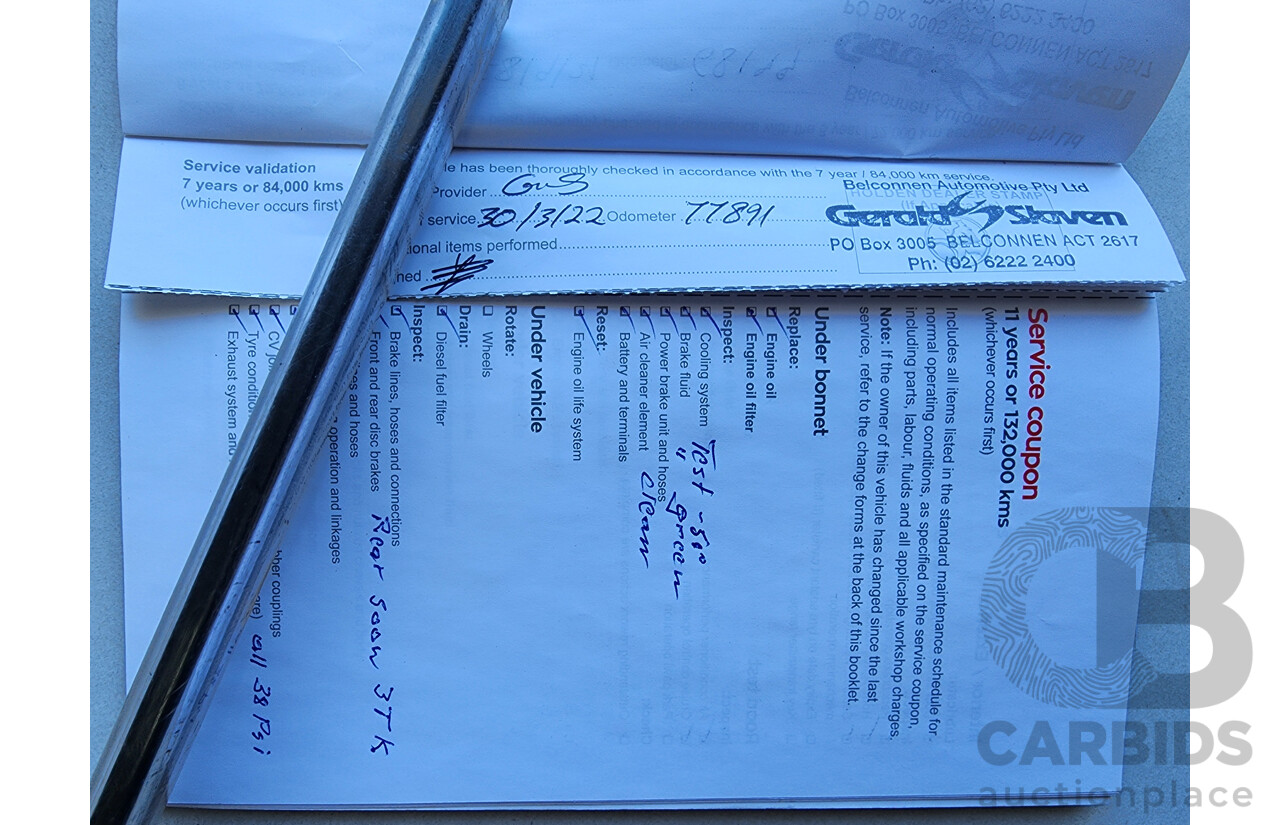 Service validation
7 years or 84,000 kms
(whichever occurs first)
le has been thoroughly checked in accordance with the 7 year / 84,000 km service.
Provider
service 30/3/22 Odometer 77891
ional items performed
ned
HOLDEN DEALER STAMP
Belconnen Automotive Pty Ltd
Gerald Slaven
PO Box 3005 BELCONNEN ACT 2617
Ph: (02) 6222 2400
Service coupon
11 years or 132,000 kms
(whichever occurs first)
Includes all items listed in the standard maintenance schedule for
normal operating conditions, as specified on the service coupon,
including parts, labour, fluids and all applicable workshop charges.
Note: If the owner of this vehicle has changed since the last
service, refer to the change forms at the back of this booklet.
Under bonnet
Replace:
Engine oil
Engine oil filter
Inspect:
Cooling system Test -50°
Brake fluid " green
Power brake unit and hoses
Air cleaner element clean
Battery and terminals
Reset:
Engine oil life system
Under vehicle
Rotate:
Wheels
Drain:
Diesel fuel filter
Inspect:
Brake lines, hoses and connections
Front and rear disc brakes Rear soon 3TK
es and hoses
operation and linkages
CV jo her couplings
Tyre condition are) all 38 Psi
Exhaust system and
CARBIDS
auctionplace